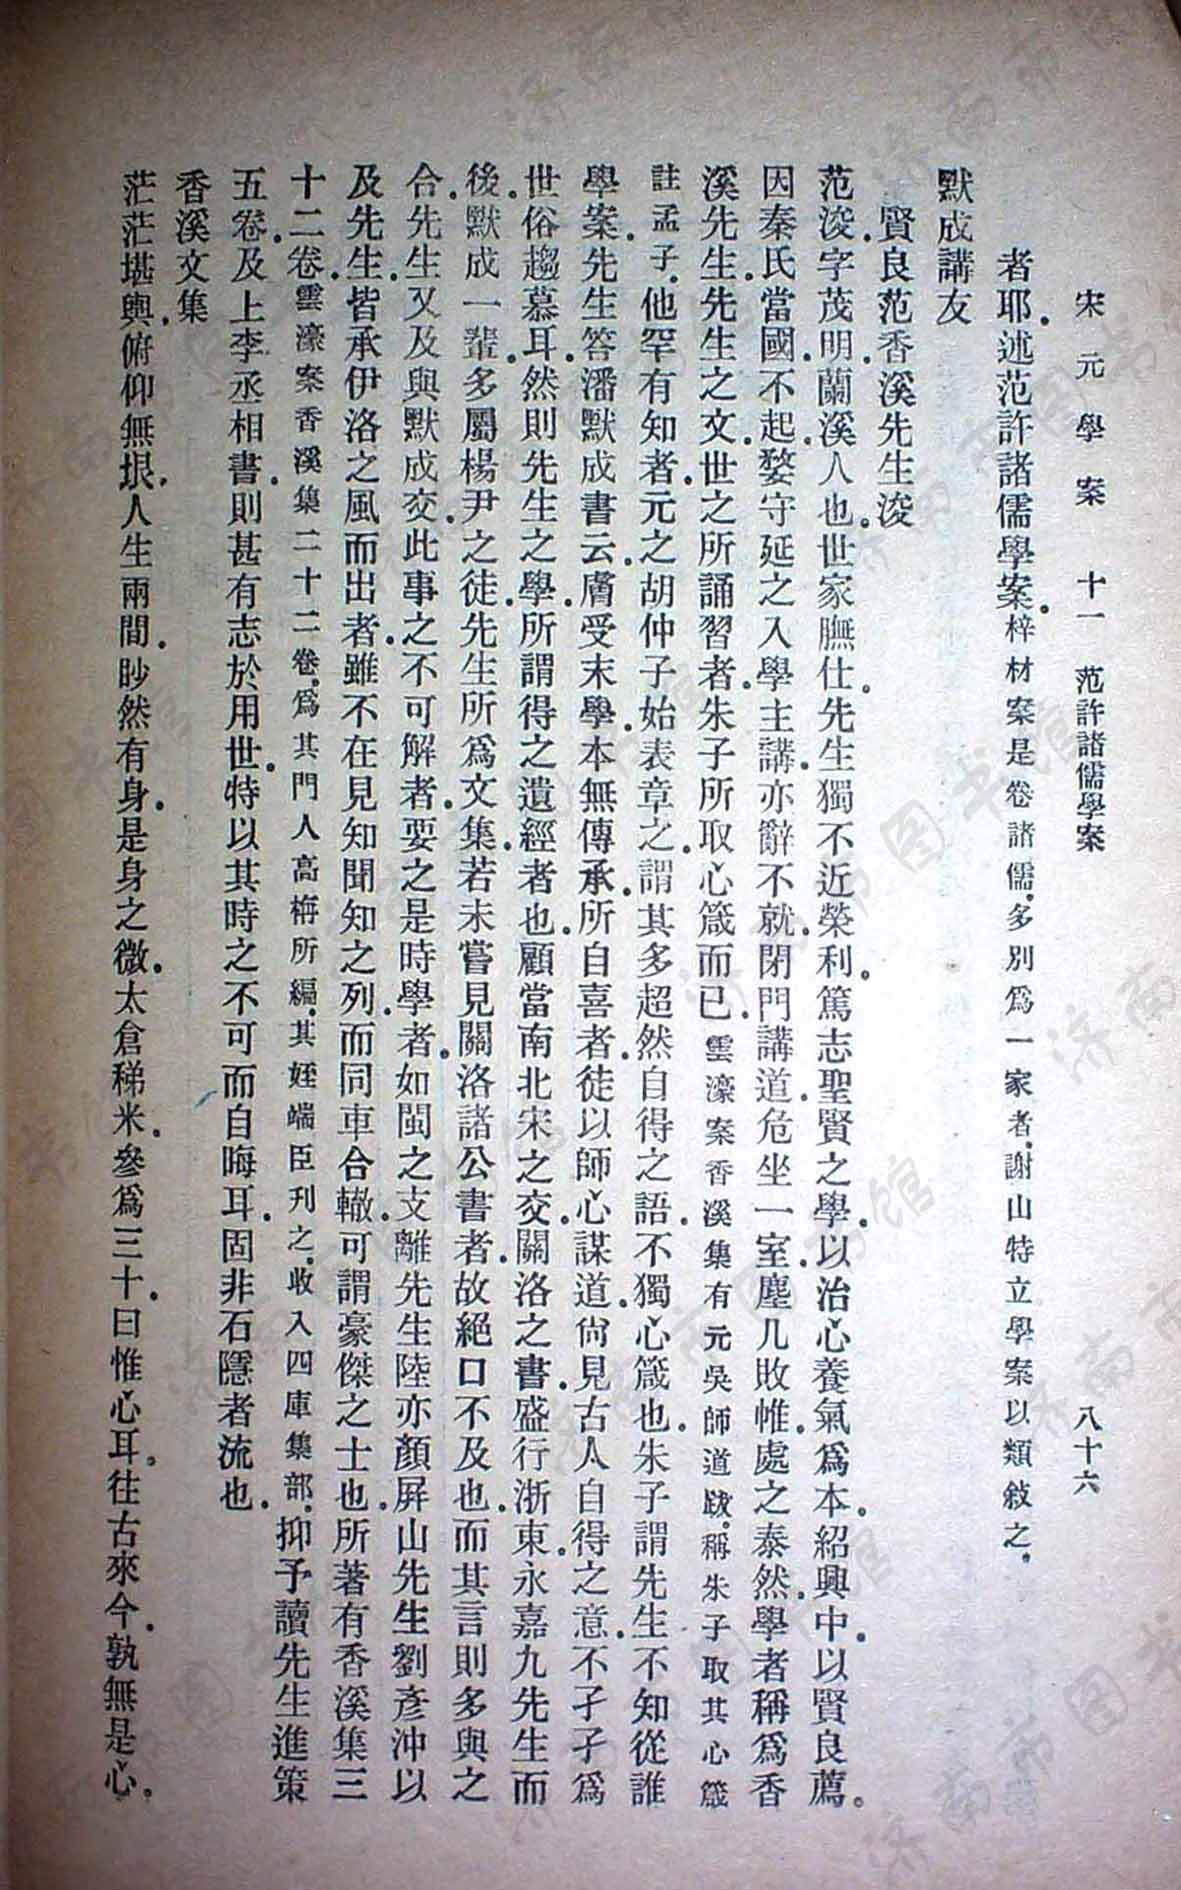 宋元學案 十一 范許諸儒學案 八十六
者耶。述范許諸儒學案。梓材案是卷諸儒。多別爲一家者。謝山特立學案以類敍之。
默成講友
賢良范香溪先生浚
范浚。字茂明。蘭溪人也。世家膴仕。先生獨不近榮利。篤志聖賢之學。以治心養氣爲本。紹興中。以賢良薦。
因秦氏當國。不起。婺守延之入學主講。亦辭不就。閉門講道。危坐一室。塵几敗帷。處之泰然。學者稱爲香
溪先生。先生之文。世之所誦習者。朱子所取心箴而已。雲濠案香溪集有元吳師道跋。稱朱子取其心箴
註孟子。他罕有知者。元之胡仲子始表章之。謂其多超然自得之語。不獨心箴也。朱子謂先生不知從誰
學案。先生答潘默成書云。膚受末學。本無傳承。所自喜者。徒以師心謀道。尙見古人自得之意。不孑孑爲
世俗趨慕耳。然則先生之學。所謂得之遺經者也。顧當南北宋之交。關洛之書。盛行浙東。永嘉九先生而
後。默成一輩。多屬楊尹之徒。先生所爲文集。若未嘗見關洛諸公書者。故絕口不及也。而其言則多與之
合。先生又及與默成交。此事之不可解者。要之是時學者。如閩之支離先生陸亦顏。屏山先生劉彥沖以
及先生。皆承伊洛之風而出者。雖不在見知聞知之列。而同車合轍。可謂豪傑之士也。所著有香溪集三
十二卷。雲濠案香溪集二十二卷。爲其門人高栴所編。其姪端臣刊之。收入四庫集部。抑予讀先生進策
五卷。及上李丞相書。則甚有志於用世。特以其時之不可而自晦耳。固非石隱者流也。
香溪文集
茫茫堪輿。俯仰無垠。人生兩間。眇然有身。是身之微。太倉稊米。參爲三十。曰惟心耳。往古來今。孰無是心。